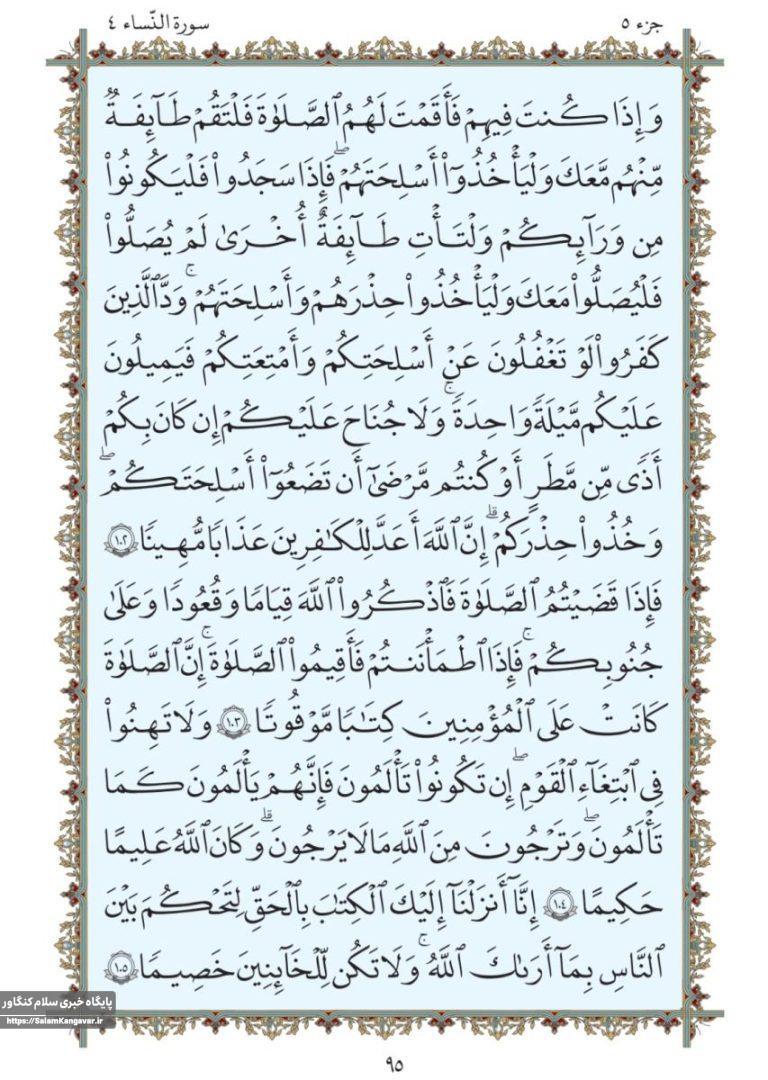 جزء ٥
سورة النّساء ٤
وَإِذَا كُنتَ فِيهِمْ فَأَقَمْتَ لَهُمُ ٱلصَّلَوٰةَ فَلْتَقُمْ طَآئِفَةٌ
مِّنْهُم مَّعَكَ وَلْيَأْخُذُوٓا۟ أَسْلِحَتَهُمْۖ فَإِذَا سَجَدُوا۟ فَلْيَكُونُوا۟
مِن وَرَآئِكُمْ وَلْتَأْتِ طَآئِفَةٌ أُخْرَىٰ لَمْ يُصَلُّوا۟
فَلْيُصَلُّوا۟ مَعَكَ وَلْيَأْخُذُوا۟ حِذْرَهُمْ وَأَسْلِحَتَهُمْۚ وَدَّ ٱلَّذِينَ
كَفَرُوا۟ لَوْ تَغْفُلُونَ عَنْ أَسْلِحَتِكُمْ وَأَمْتِعَتِكُمْ فَيَمِيلُونَ
عَلَيْكُم مَّيْلَةً وَٰحِدَةًۚ وَلَا جُنَاحَ عَلَيْكُمْ إِن كَانَ بِكُمْ
أَذًى مِّن مَّطَرٍ أَوْ كُنتُم مَّرْضَىٰٓ أَن تَضَعُوٓا۟ أَسْلِحَتَكُمْۖ
وَخُذُوا۟ حِذْرَكُمْۗ إِنَّ ٱللَّهَ أَعَدَّ لِلْكَٰفِرِينَ عَذَابًا مُّهِينًا ١٠٢
فَإِذَا قَضَيْتُمُ ٱلصَّلَوٰةَ فَٱذْكُرُوا۟ ٱللَّهَ قِيَٰمًا وَقُعُودًا وَعَلَىٰ
جُنُوبِكُمْۚ فَإِذَا ٱطْمَأْنَنتُمْ فَأَقِيمُوا۟ ٱلصَّلَوٰةَۚ إِنَّ ٱلصَّلَوٰةَ
كَانَتْ عَلَى ٱلْمُؤْمِنِينَ كِتَٰبًا مَّوْقُوتًا ١٠٣ وَلَا تَهِنُوا۟
فِى ٱبْتِغَآءِ ٱلْقَوْمِۖ إِن تَكُونُوا۟ تَأْلَمُونَ فَإِنَّهُمْ يَأْلَمُونَ كَمَا
تَأْلَمُونَۖ وَتَرْجُونَ مِنَ ٱللَّهِ مَا لَا يَرْجُونَۗ وَكَانَ ٱللَّهُ عَلِيمًا
حَكِيمًا ١٠٤ إِنَّآ أَنزَلْنَآ إِلَيْكَ ٱلْكِتَٰبَ بِٱلْحَقِّ لِتَحْكُمَ بَيْنَ
ٱلنَّاسِ بِمَآ أَرَىٰكَ ٱللَّهُۚ وَلَا تَكُن لِّلْخَآئِنِينَ خَصِيمًا ١٠٥
پایگاه خبری سلام کنگاور
https://SalamKangavar.ir
٩٥